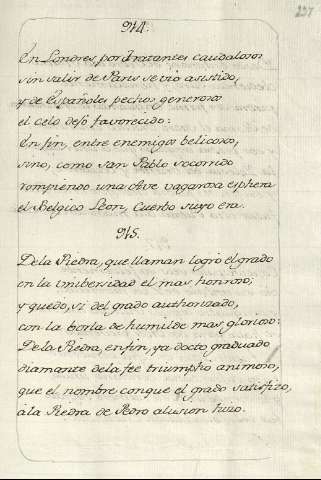 237
914.
En Londres por tratantes caudalosos
sin salir de Paris se vio asistido,
y de Españoles pechos generosos
el celo de só favorecido:
En fin, entre enemigos belicosos,
sino, como San Pablo socorrido
rompiendo una Ave vagarosa esphera
el Belgico Leon, Cuerbo suyo era.
915.
De la Piedra, que llaman logro el grado
en la Unibersidad el mas honroso;
y quedo, si del grado authorizado,
con la borla de humilde mas glorioso:
De la Piedra, en fin, ya docto graduado
diamante de la fee triumphó animoso,
que el nombre con que el grado satisfizo,
á la Piedra de Pedro alusion hizo.